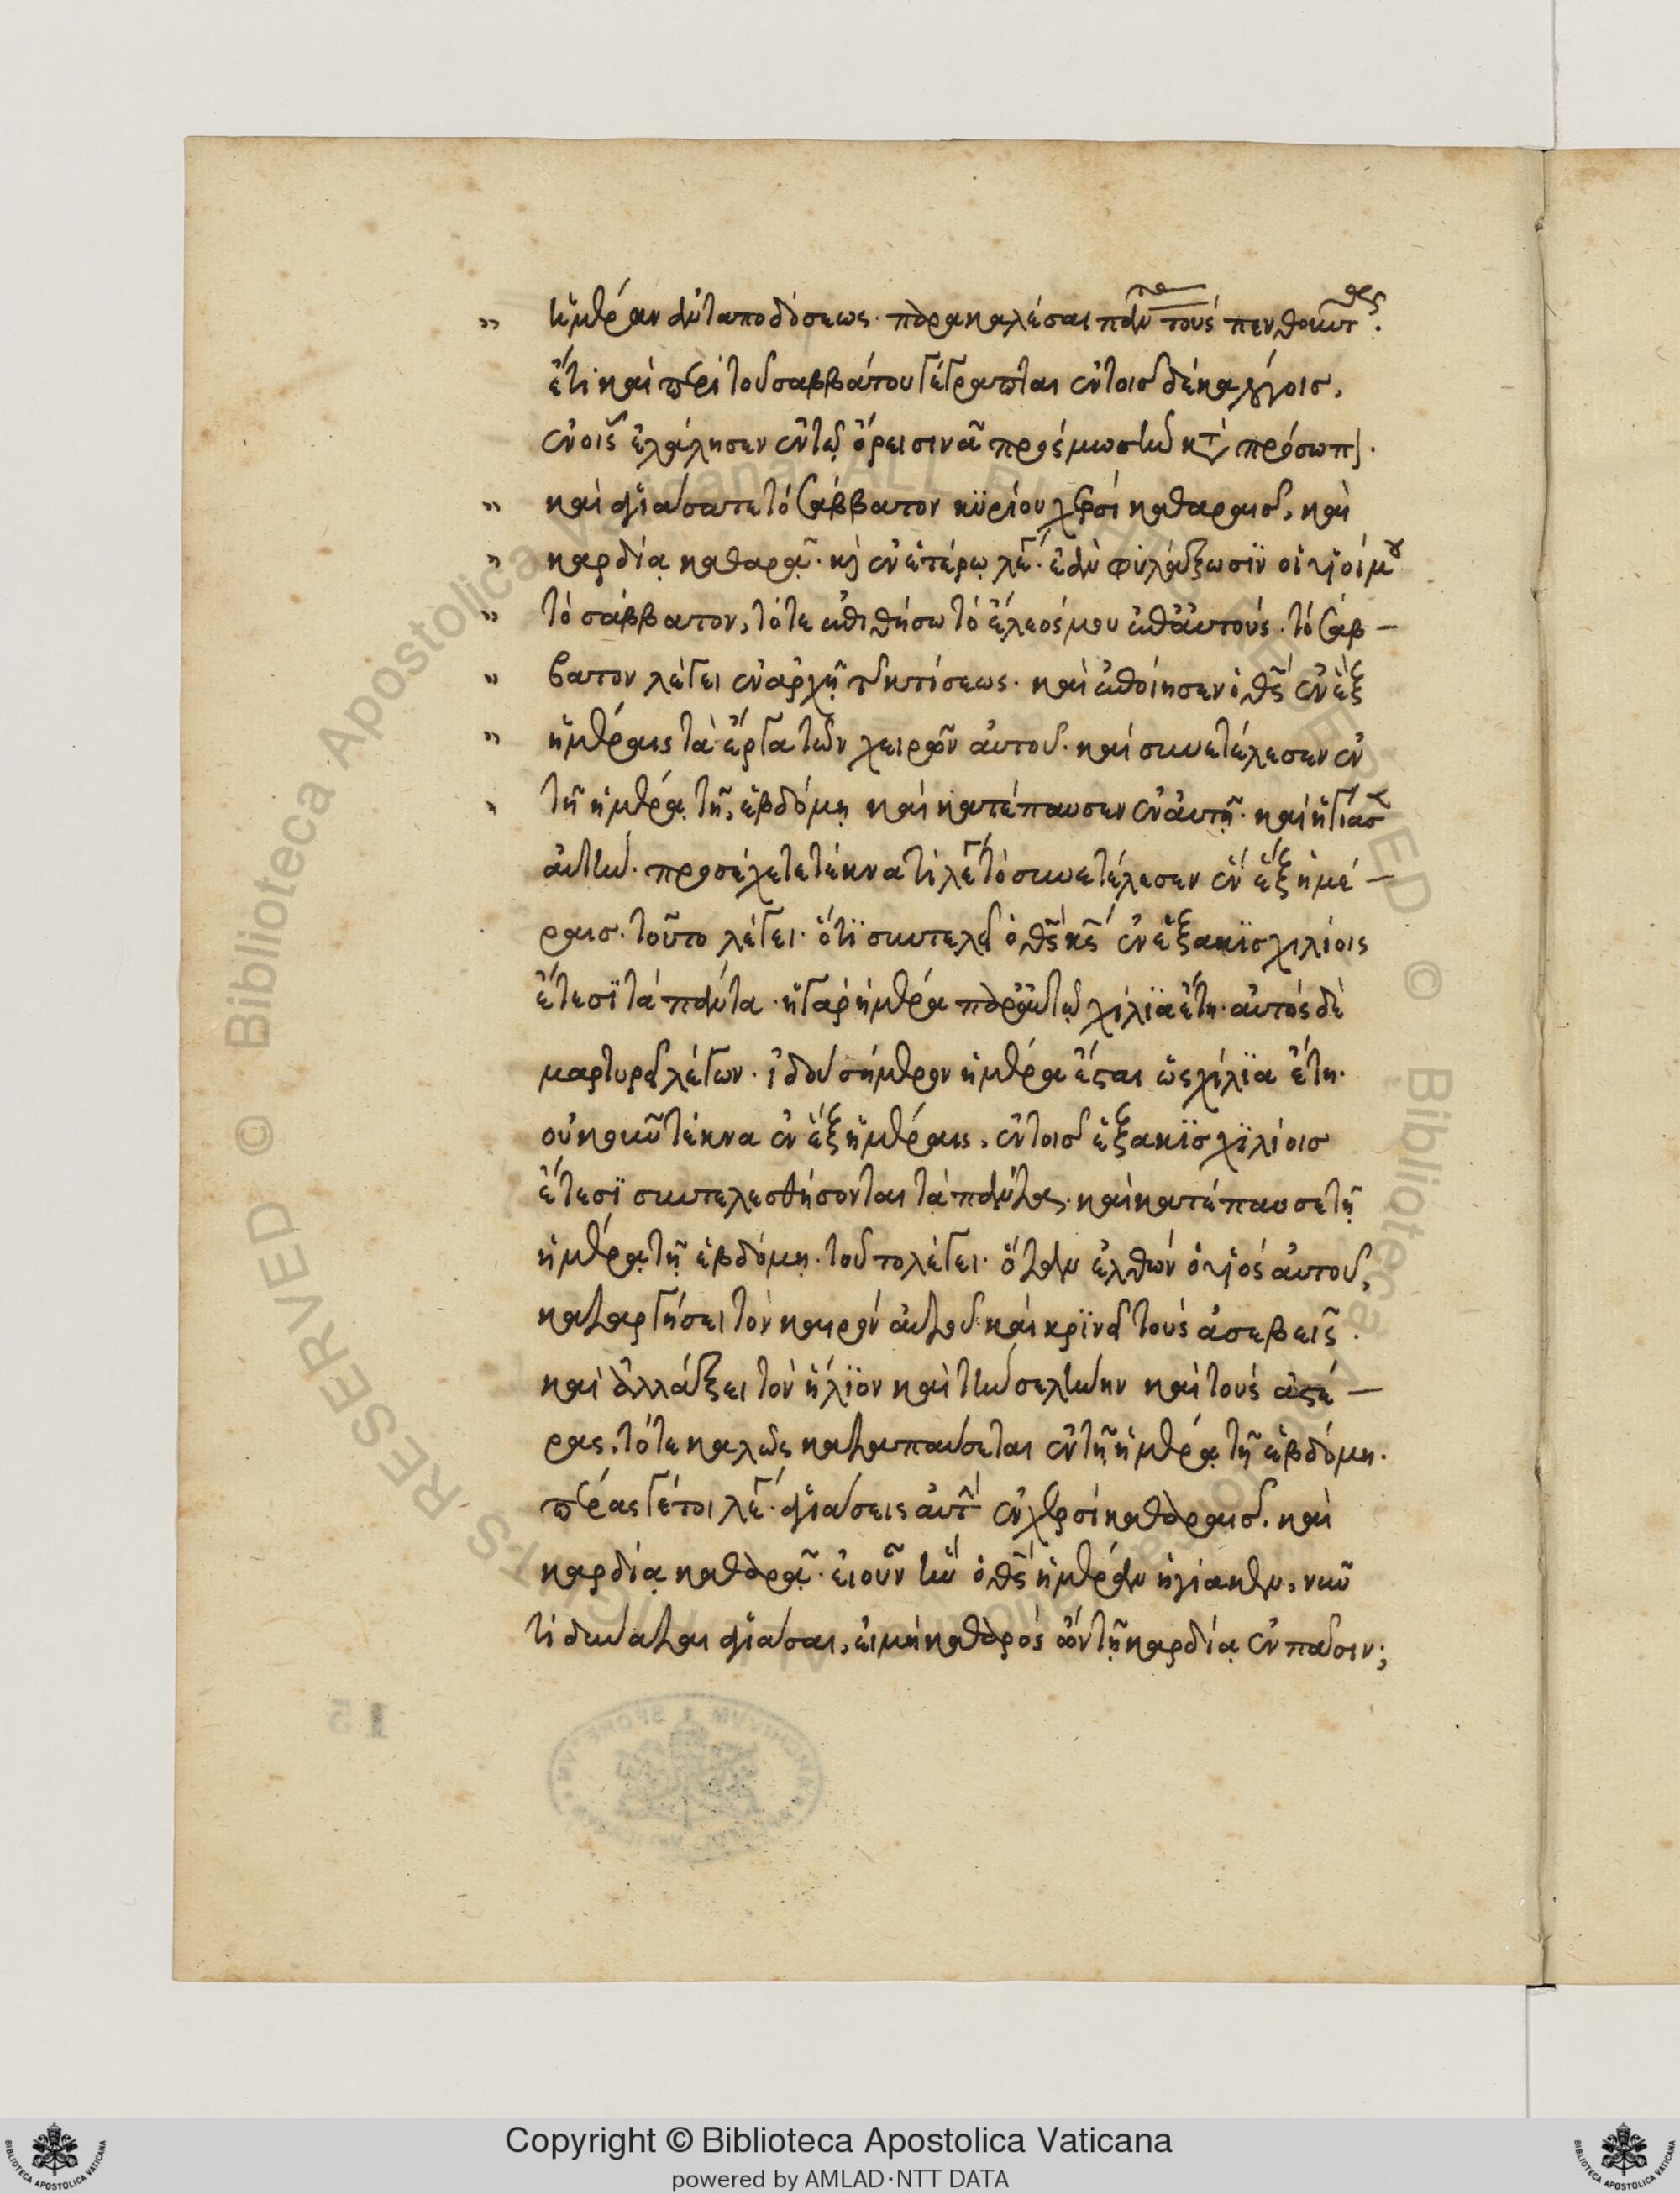 ἡμέραν ἀνταποδόσεως· παρακαλέσαι πάντας τοὺς πενθοῦντας.
ἔτι καὶ περὶ τοῦ σαββάτου γέγραπται ἐν τοῖς δέκα λόγοις,
ἐν οἷς ἐλάλησεν ἐν τῷ ὄρει σινᾶ πρὸς μωσῆν κατὰ πρόσωπον.
καὶ ἁγιάσατε τὸ σάββατον κυρίου χερσὶ καθαραῖς, καὶ
καρδίᾳ καθαρᾷ· καὶ ἐν ἑτέρῳ λέγει· ἐὰν φυλάξωσιν οἱ υἱοί μου
τὸ σάββατον, τότε ἐπιθήσω τὸ ἔλεός μου ἐπ' αὐτούς. τὸ σάβ-
βατον λέγει ἐν ἀρχῇ τῆς κτίσεως· καὶ ἐποίησεν ὁ θς ἐν ἓξ
ἡμέραις τὰ ἔργα τῶν χειρῶν αὐτοῦ. καὶ συνετέλεσεν ἐν
τῇ ἡμέρᾳ τῇ ἑβδόμῃ καὶ κατέπαυσεν ἐν αὐτῇ. καὶ ἡγίασεν
αὐτήν. προσέχετε τέκνα τί λέγει τὸ συνετέλεσεν ἐν ἓξ ἡμέ-
ραις. τοῦτο λέγει· ὅτι συντελεῖ ὁ θς κς ἐν ἑξακισχιλίοις
ἔτεσι τὰ πάντα. ἡ γὰρ ἡμέρα παρ' αὐτῷ χίλια ἔτη· αὐτὸς δὲ
μαρτυρεῖ λέγων· ἰδοὺ σήμερον ἡμέρα ἔσται ὡς χίλια ἔτη.
οὐκοῦν τέκνα ἐν ἓξ ἡμέραις, ἐν τοῖς ἑξακισχιλίοις
ἔτεσι συντελεσθήσονται τὰ πάντα. καὶ κατέπαυσε τῇ
ἡμέρᾳ τῇ ἑβδόμῃ. τοῦτο λέγει· ὅταν ἐλθὼν ὁ υἱὸς αὐτοῦ,
καταργήσει τὸν καιρὸν αὐτοῦ καὶ κρινεῖ τοὺς ἀσεβεῖς.
καὶ ἀλλάξει τὸν ἥλιον καὶ τὴν σελήνην καὶ τοὺς ἀστέ-
ρας, τότε καλῶς καταπαύσεται ἐν τῇ ἡμέρᾳ τῇ ἑβδόμῃ.
πέρας γέτοι λέγει· ἁγιάσεις αὐτὴν ἐν χερσὶ καθαραῖς. καὶ
καρδίᾳ καθαρᾷ. εἰ οὖν ἣν ὁ θς ἡμέραν ἡγίακεν, νῦν
τὶ δύναται ἁγιάσαι, εἰ μὴ καθαρὸς ὢν τῇ καρδίᾳ ἐν πᾶσιν;
15
Copyright © Biblioteca Apostolica Vaticana
powered by AMLAD·NTT DATA